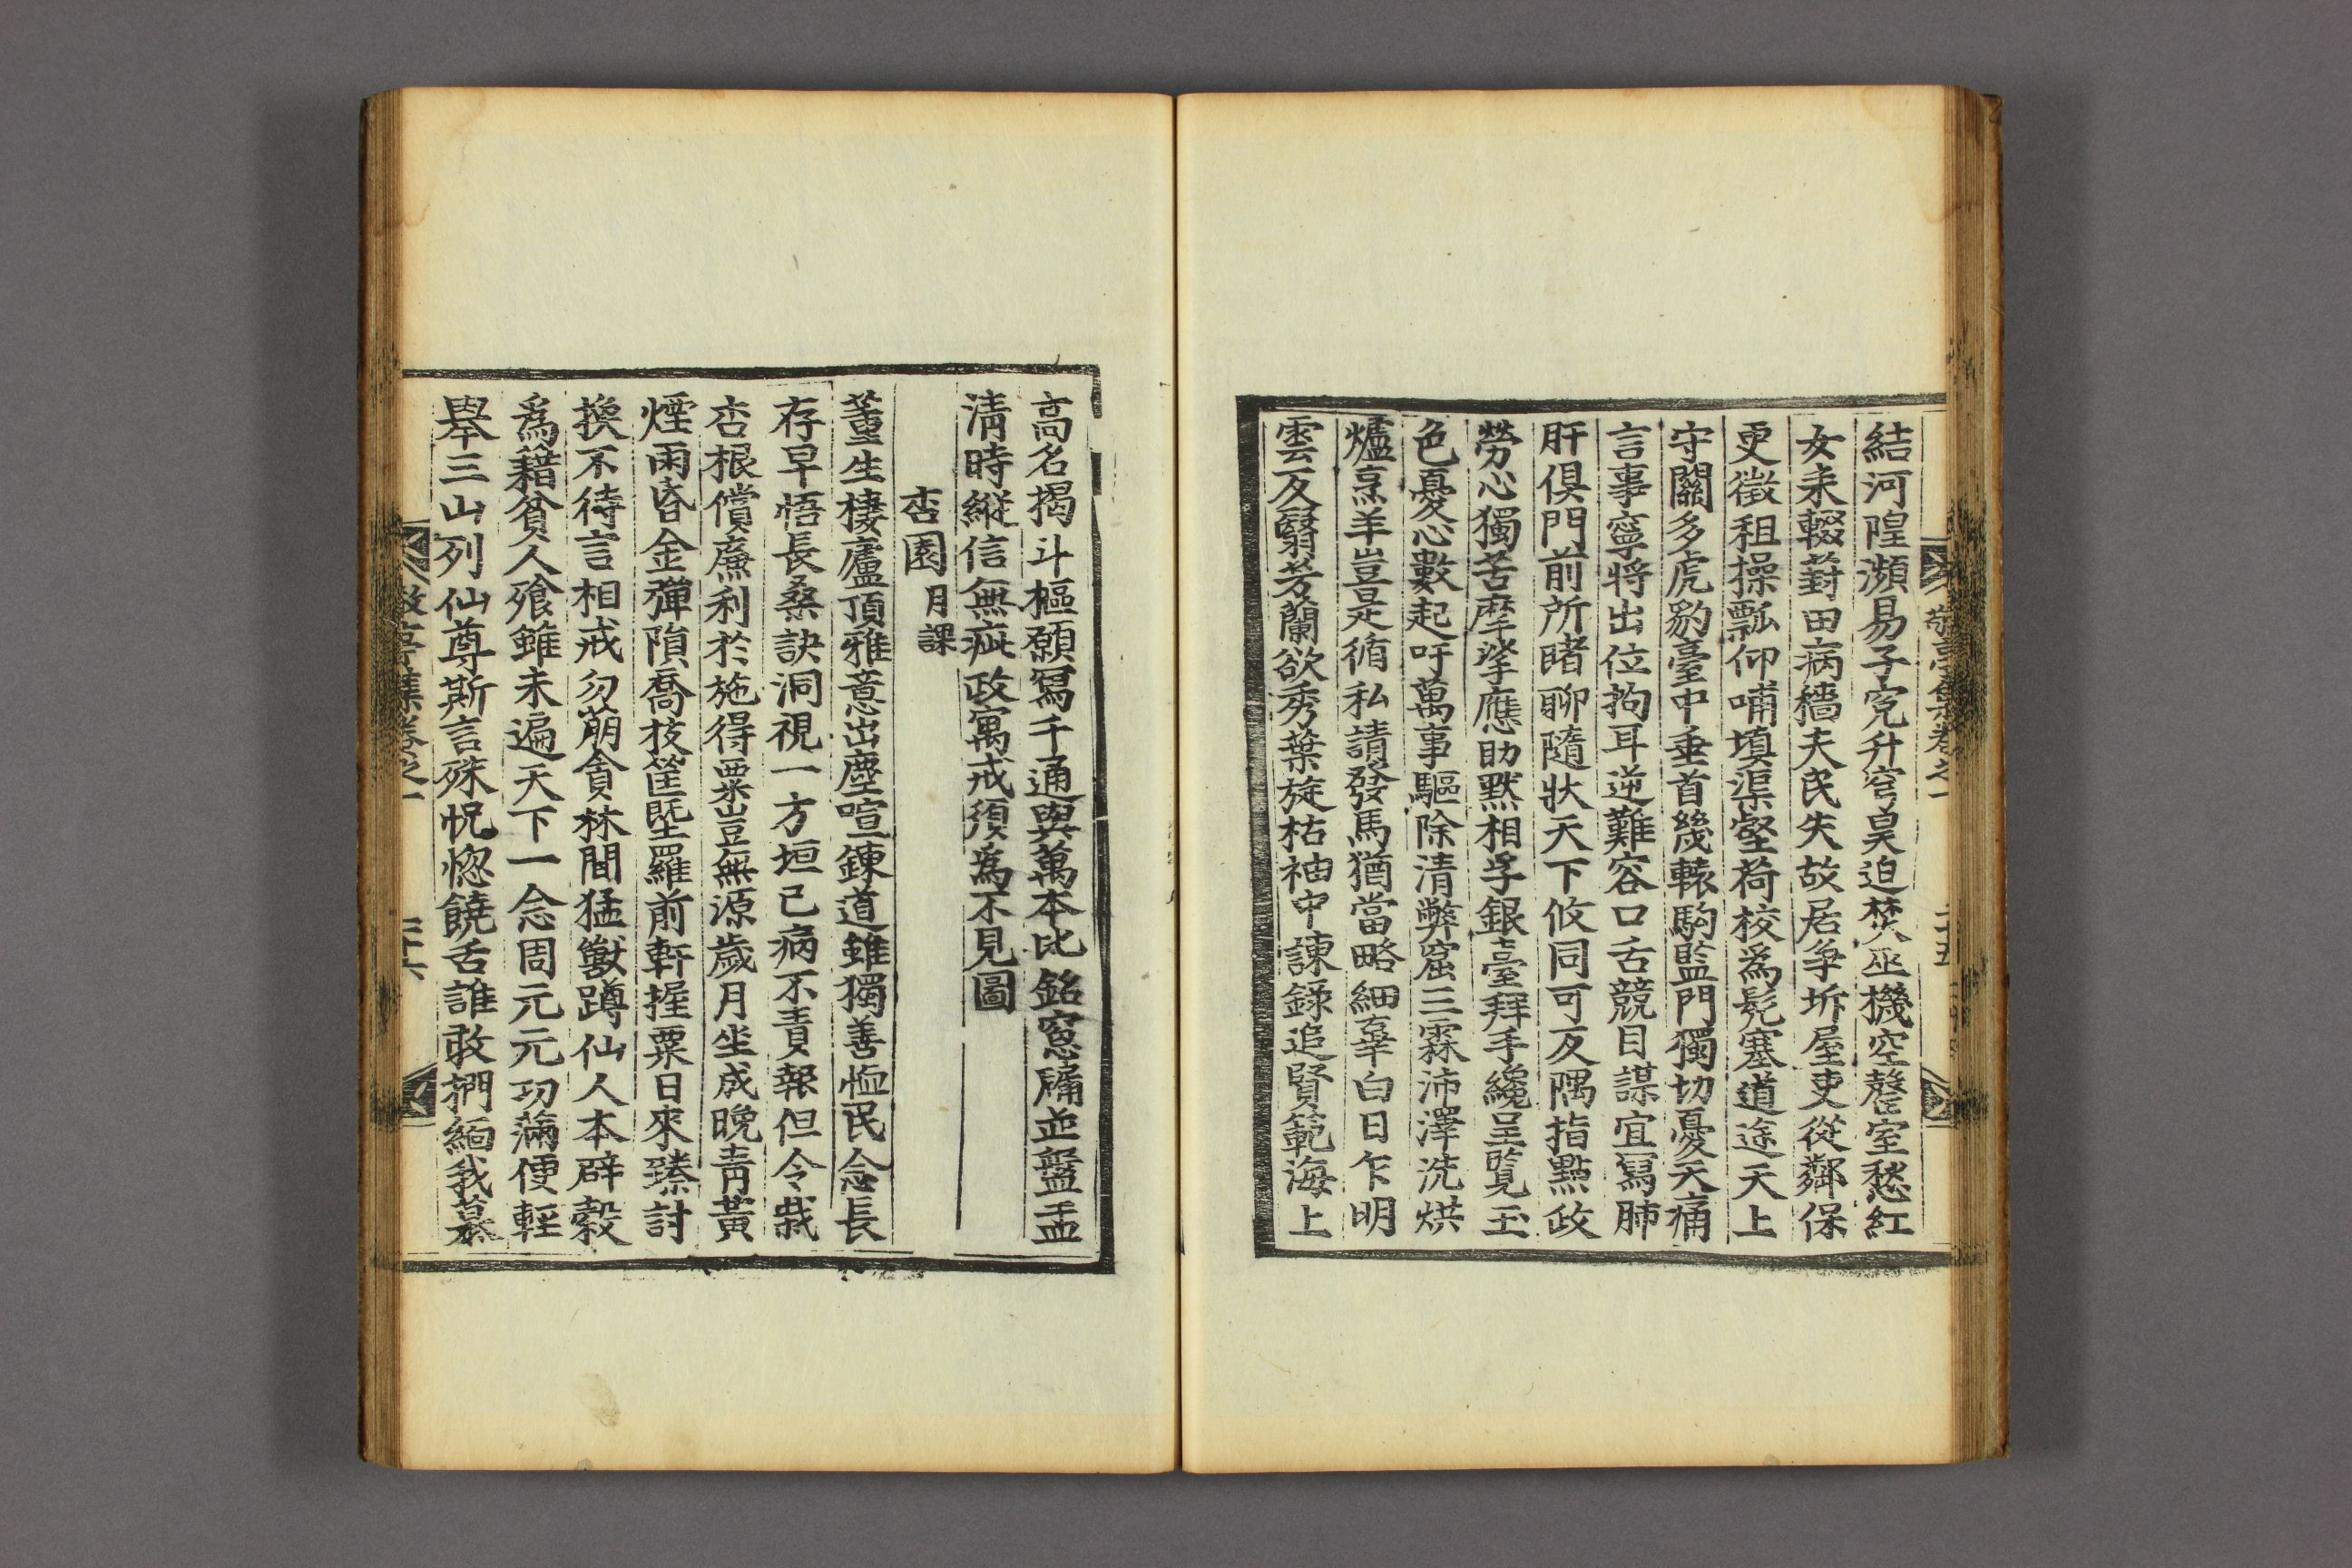 結河隍瀕易子究升穹昊迫焚巫機空罄室愁紅
女耒輟葑田病穡夫民失故居爭坼屋吏從鄰保
更徵租操瓢仰哺塡渠壑荷校爲髡塞道途天上
守關多虎豹臺中垂首幾轅駒監門獨切憂天痛
言事寧將出位拘耳逆難容口舌競目謀宜寫肺
肝俱門前所睹聊隨狀天下攸同可反隅指點政
勞心獨苦摩挲應助默相孚銀臺拜手纔呈覽玉
色憂心數起吁萬事驅除淸弊窟三霖沛澤洗烘
爐烹羊豈是循私請發馬猶當略細辜白日乍明
雲反翳芳蘭欲秀葉旋枯袖中諫錄追賢範海上
高名揭斗樞願寫千通與萬本比銘窓牖並盤盂
淸時縱信無疵政寓戒須爲不見圖
杏園 月課
董生棲廬頂雅意出塵喧鍊道雖獨善恤民念長
存早悟長桑訣洞視一方垣已病不責報但令栽
杏根償廉利於施得粟豈無源歲月坐成晩靑黃
煙雨昏金彈隕喬枝筐墍羅前軒握粟日來臻討
換不待言相戒勿萠貪林間猛獸蹲仙人本辟穀
爲藉貧人飱雖未遍天下一念周元元功滿便輕
擧三山列仙尊斯言殊怳惚饒舌誰敢捫緬我慕
敬亭集卷之一 二十六